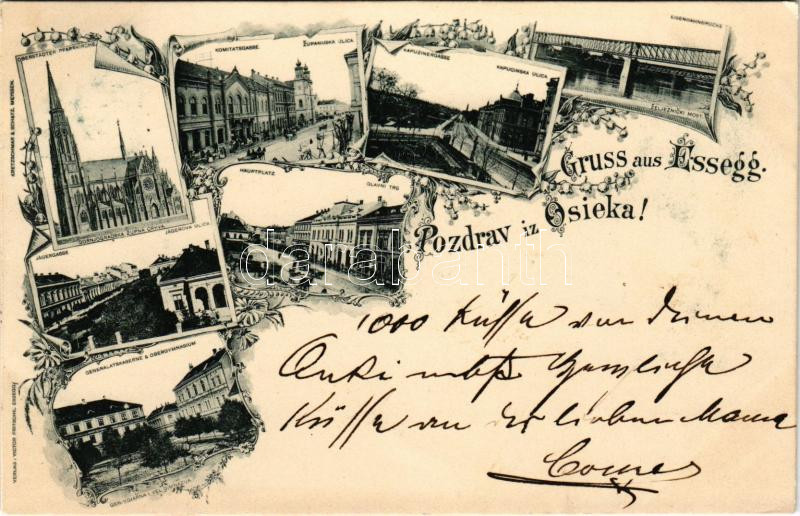 OBERSTÄDTER PFARRKIRCHE
GORNJOGRADSKA ŽUPNA CRKVA
KOMITATSGASSE
ŽUPANIJSKA ULICA
KAPUZINERGASSE
KAPUCINSKA ULICA
EISENBAHNBRÜCKE
ŽELJEZNIČKI MOST
HAUPTPLATZ
GLAVNI TRG
JÄGERGASSE
JÄGEROVA ULICA
GENERALATSKASERNE & OBERGYMNASIUM
Gruss aus Essegg.
Pozdrav iz Osieka!
darabanth
1000 Küsse von Deinem
Onki
Küsse an der lieben Mama
KRETZSCHMAR & SCHATZ, MEISSEN.
VERLAG: VICTOR FRITSCHE, ESSEGG